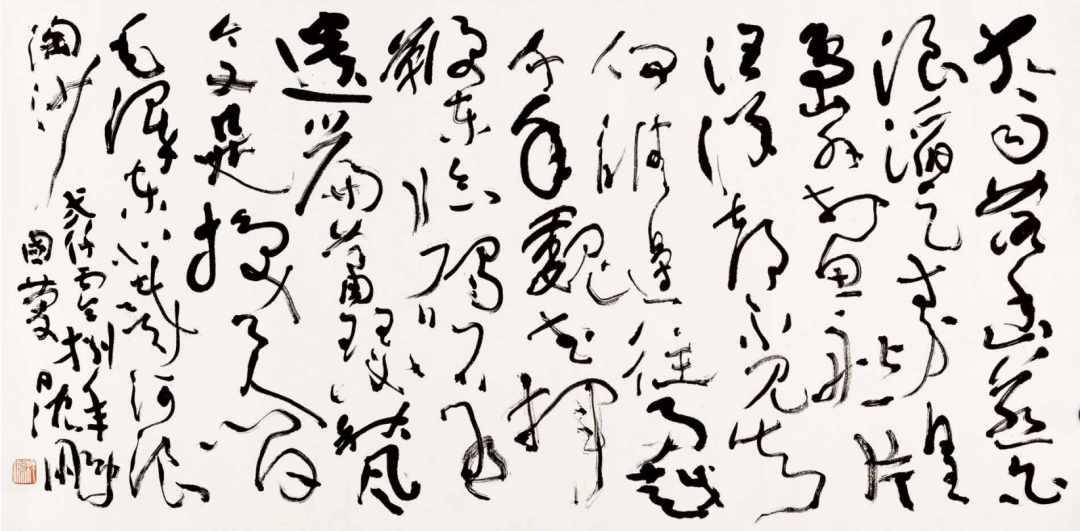 大雨落幽燕白
浪滔天秦皇
岛外打鱼船一片
汪洋都不见知
向谁边往事越
千年魏武挥
鞭东临碣石有
遗篇萧瑟秋风
今又是换了人间
毛泽东北戴河浪
淘沙
捌年沈鹏
國慶